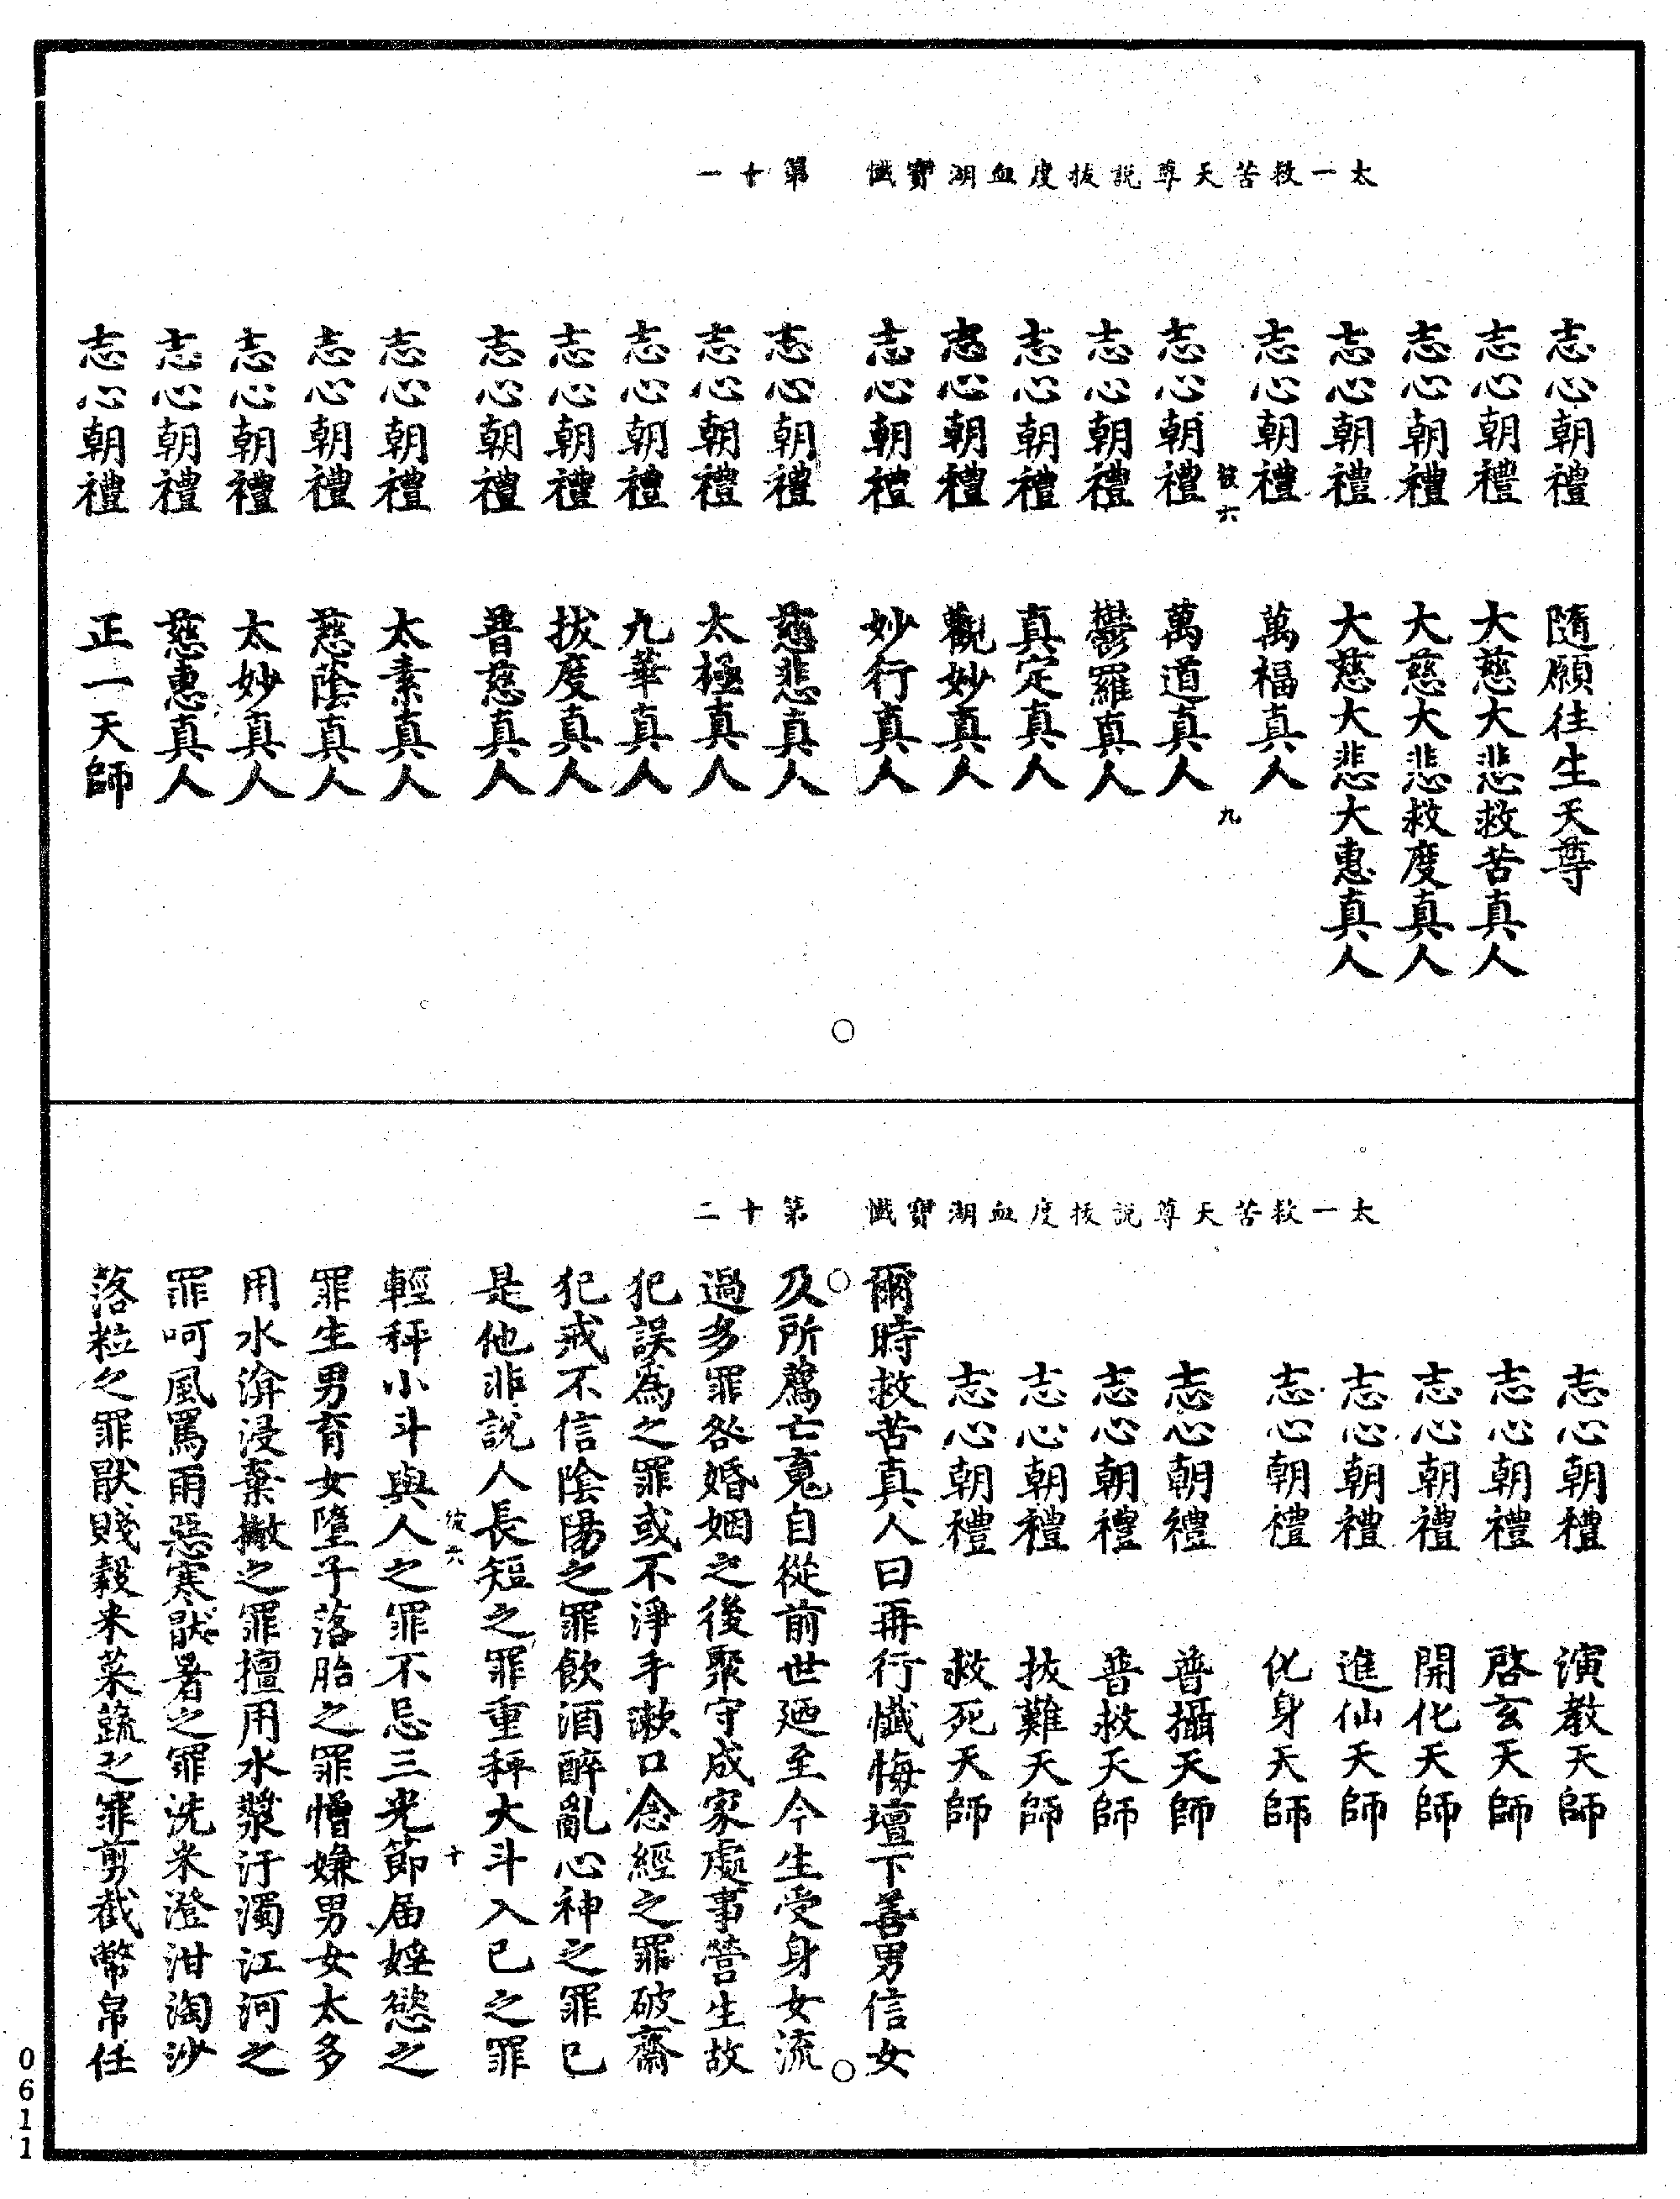 太一救苦天尊說拔度血湖寶懺　第十一
志心朝禮　隨願往生天尊
志心朝禮　大慈大悲救苦真人
志心朝禮　大慈大悲救度真人
志心朝禮　大慈大悲大惠真人
志心朝禮　萬福真人
彼六　九
志心朝禮　萬道真人
志心朝禮　鬱羅真人
志心朝禮　真定真人
志心朝禮　觀妙真人
志心朝禮　妙行真人
志心朝禮　慈悲真人
志心朝禮　太極真人
志心朝禮　九華真人
志心朝禮　拔度真人
志心朝禮　普慈真人
志心朝禮　太素真人
志心朝禮　慈蔭真人
志心朝禮　太妙真人
志心朝禮　慈惠真人
志心朝禮　正一天師
太一救苦天尊說拔度血湖寶懺　第十二
志心朝禮　演教天師
志心朝禮　啓玄天師
志心朝禮　開化天師
志心朝禮　進仙天師
志心朝禮　化身天師
志心朝禮　普攝天師
志心朝禮　普救天師
志心朝禮　拔難天師
志心朝禮　救死天師
爾時救苦真人曰再行懺悔壇下善男信女
及所薦亡䰟自從前世廼至今生受身女流
過多罪咎婚姻之後聚守成家處事營生故
犯誤為之罪或不淨手漱口念經之罪破齋
犯戒不信陰陽之罪飲酒醉亂心神之罪已
是他非說人長短之罪重秤大斗入已之罪
彼六　十
輕秤小斗與人之罪不忌三光節届婬慾之
罪生男育女墮子落胎之罪憎嫌男女太多
用水渰浸棄撇之罪擅用水漿汙濁江河之
罪呵風罵雨惡寒猒暑之罪洗米澄泔淘沙
落粒之罪猒賤穀米菜蔬之罪剪截幣帛任
0611